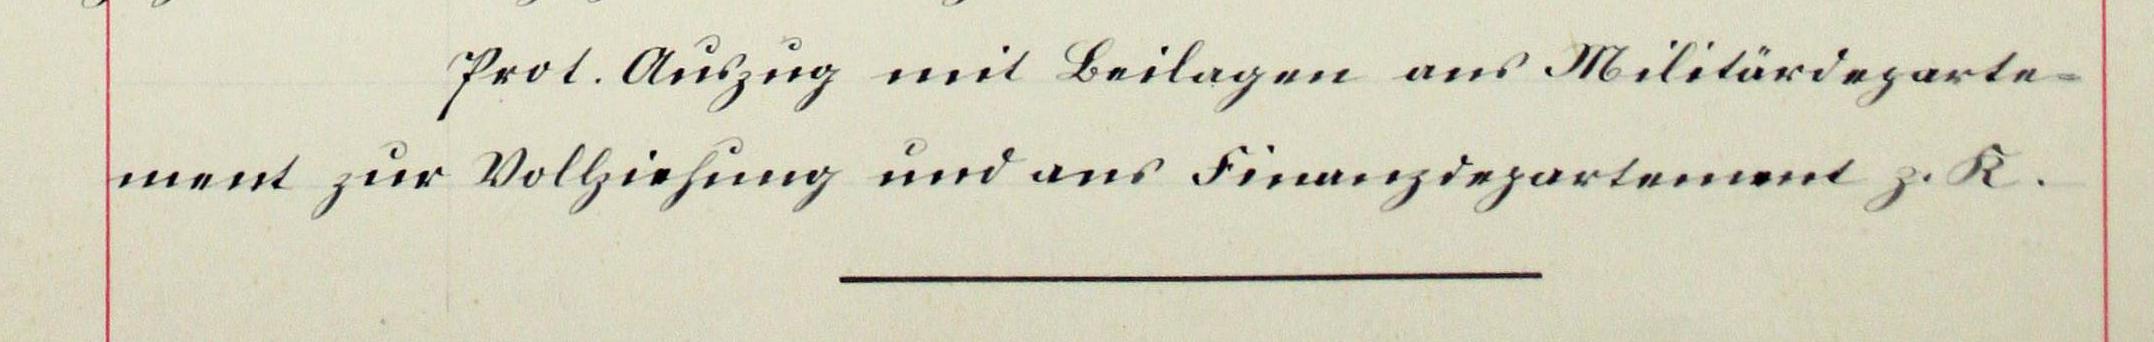 Prot. Auszug mit Beilagen ans Militärdeparte-
ment zur Vollziehung und ans Finanzdepartement z. K.